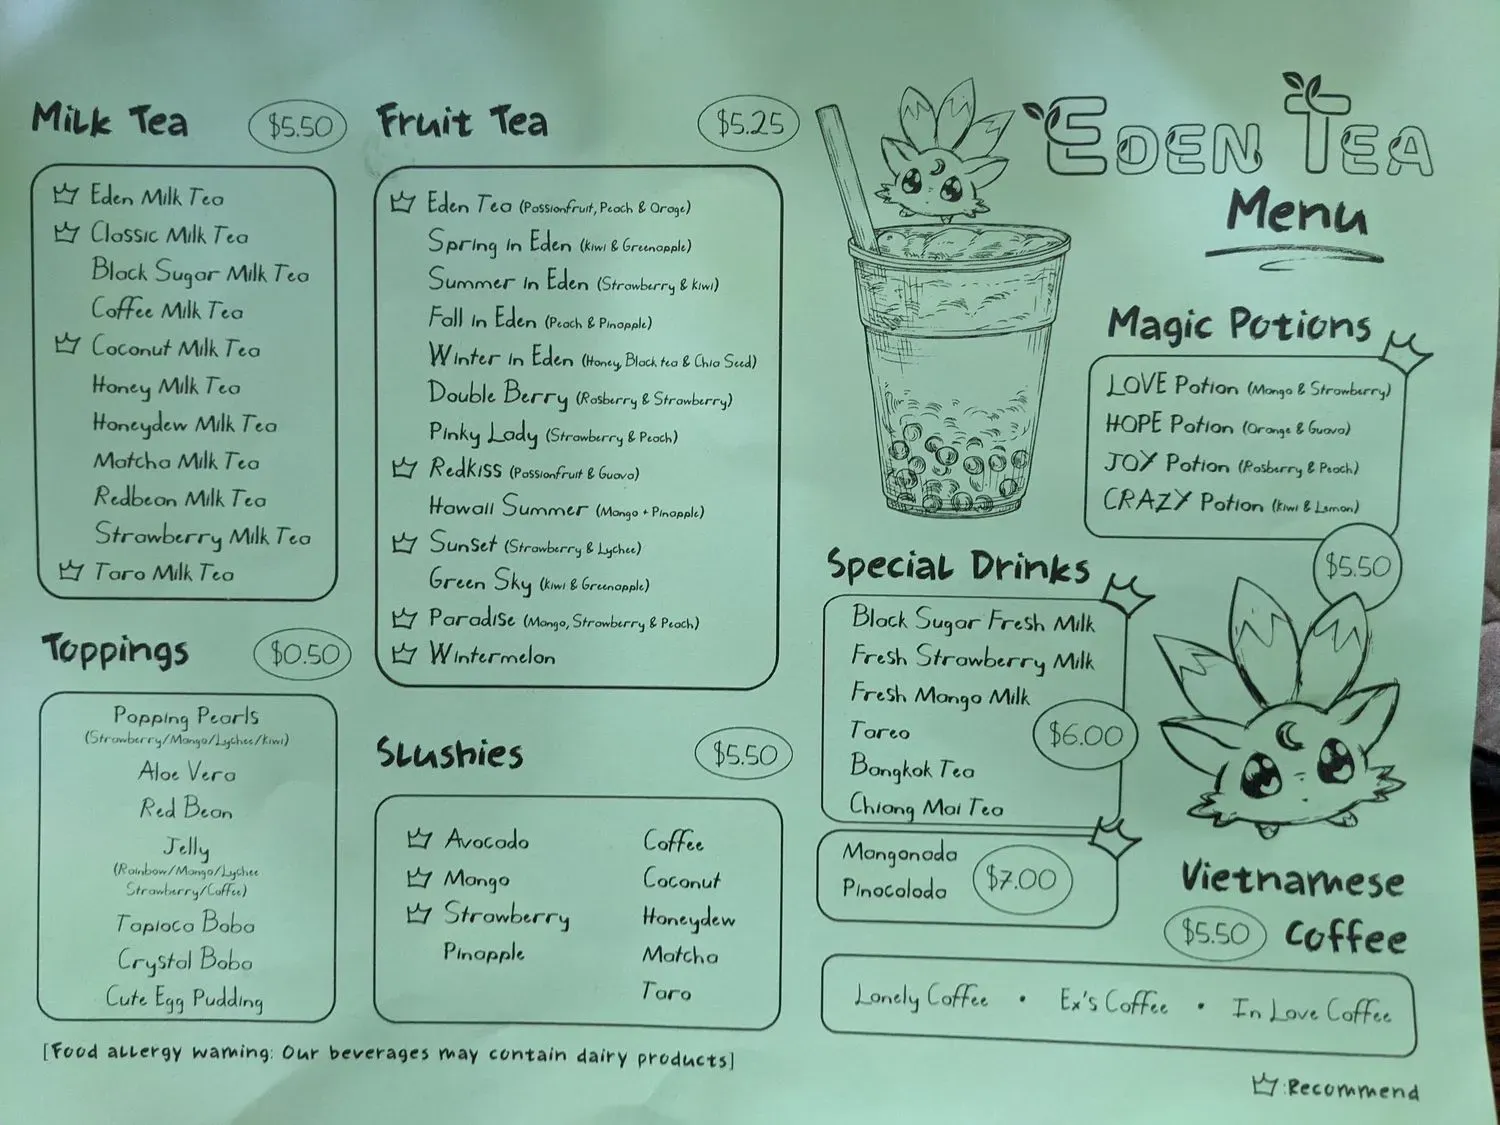 Milk Tea $5.50
Eden Milk Tea
Classic Milk Tea
Black Sugar Milk Tea
Coffee Milk Tea
Coconut Milk Tea
Honey Milk Tea
Honeydew Milk Tea
Matcha Milk Tea
Redbean Milk Tea
Strawberry Milk Tea
Taro Milk Tea
Toppings $0.50
Popping Pearls
(Strawberry/Mango/Lychee/kiwi)
Aloe Vera
Red Bean
Jelly
(Rainbow/Mango/Lychee
Strawberry/Coffee)
Tapioca Boba
Crystal Boba
Cute Egg Pudding
Fruit Tea $5.25
Eden Tea (Passionfruit, Peach & Orage)
Spring in Eden (kiwi & Greenapple)
Summer in Eden (Strawberry & kiwi)
Fall in Eden (Peach & Pinapple)
Winter in Eden (Honey, Black tea & Chia Seed)
Double Berry (Rasberry & Strawberry)
Pinky Lady (Strawberry & Peach)
Redkiss (Passionfruit & Guava)
Hawaii Summer (Mango + Pinapple)
Sunset (Strawberry & Lychee)
Green Sky (kiwi & Greenapple)
Paradise (Mango, Strawberry & Peach)
Wintermelon
Slushies $5.50
Avocado
Mango
Strawberry
Pinapple
Coffee
Coconut
Honeydew
Matcha
Taro
[Food allergy warning: Our beverages may contain dairy products]
Eden Tea
Menu
Magic Potions
LOVE Potion (Mango & Strawberry)
HOPE Potion (Orange & Guava)
JOY Potion (Rasberry & Peach)
CRAZY Potion (kiwi & Lemon)
$5.50
Special Drinks
Black Sugar Fresh Milk
Fresh Strawberry Milk
Fresh Mango Milk
Tareo
Bangkok Tea
Chiang Mai Tea
$6.00
Mangonada
Pinacolada
$7.00
Vietnamese
$5.50 Coffee
Lonely Coffee • Ex's Coffee • In Love Coffee
:Recommend